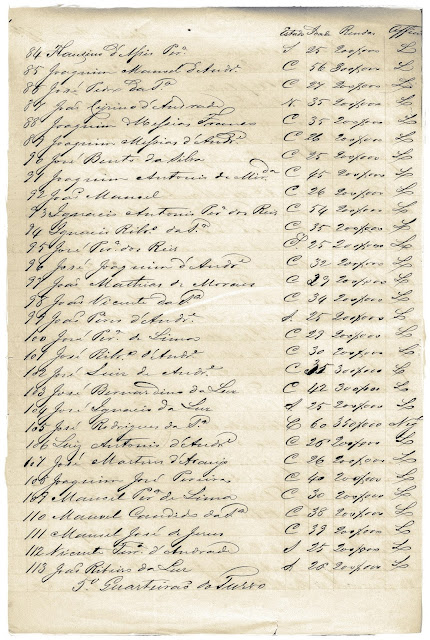 Estado Idade Renda Offico
84 Flausino d'Assis Perª S 25 200$000 L
85 Joaquim Manoel d'Andrª C 56 300$000 L
86 José Pedro da Sª C 27 200$000 L
87 João Cyrino d'Andrade V 35 200$000 L
88 Joaquim Messias Franco C 35 200$000 L
89 Joaquim Messias d'Andrª C 26 200$000 L
90 José Bento da Silva C 25 200$000 L
91 Joaquim Antonio de Mirda C 45 200$000 L
92 João Manoel C 26 200$000 L
93 Ignacio Antonio Perª dos Reis C 54 200$000 L
94 Ignacio Ribrº da Sª C 35 200$000 L
95 José Perª dos Reis C 25 200$000 L
96 José Joaquim d'Andrª C 32 200$000 L
97 João Mathias de Moraes C 39 200$000 L
98 João Vicente da Sª C 34 200$000 L
99 João Pires d'Andrª S 25 200$000 L
100 José Perª de Lima C 29 200$000 L
101 José Ribrº d'Andrª C 30 200$000 L
102 José Luiz de Andrª C 35 300$000 L
103 José Bernardino da Luz C 42 300$000 L
104 José Ignacio da Luz S 25 200$000 L
105 José Rodrigues da Sª C 60 350$000 Neg
106 Luiz Antonio d'Andrª C 26 200$000 L
107 José Martins d'Araujo C 26 200$000 L
108 Joaquim José Pereira C 40 200$000 L
109 Manoel Perª de Lima C 30 200$000 L
110 Manoel Candido da Sª C 38 200$000 L
111 Manoel José de Jesus C 39 200$000 L
112 Vicente Ferrª d'Andrade S 25 200$000 L
113 João Ribeiro da Luz S 26 200$000 L
7º Quarteirão do Turvo